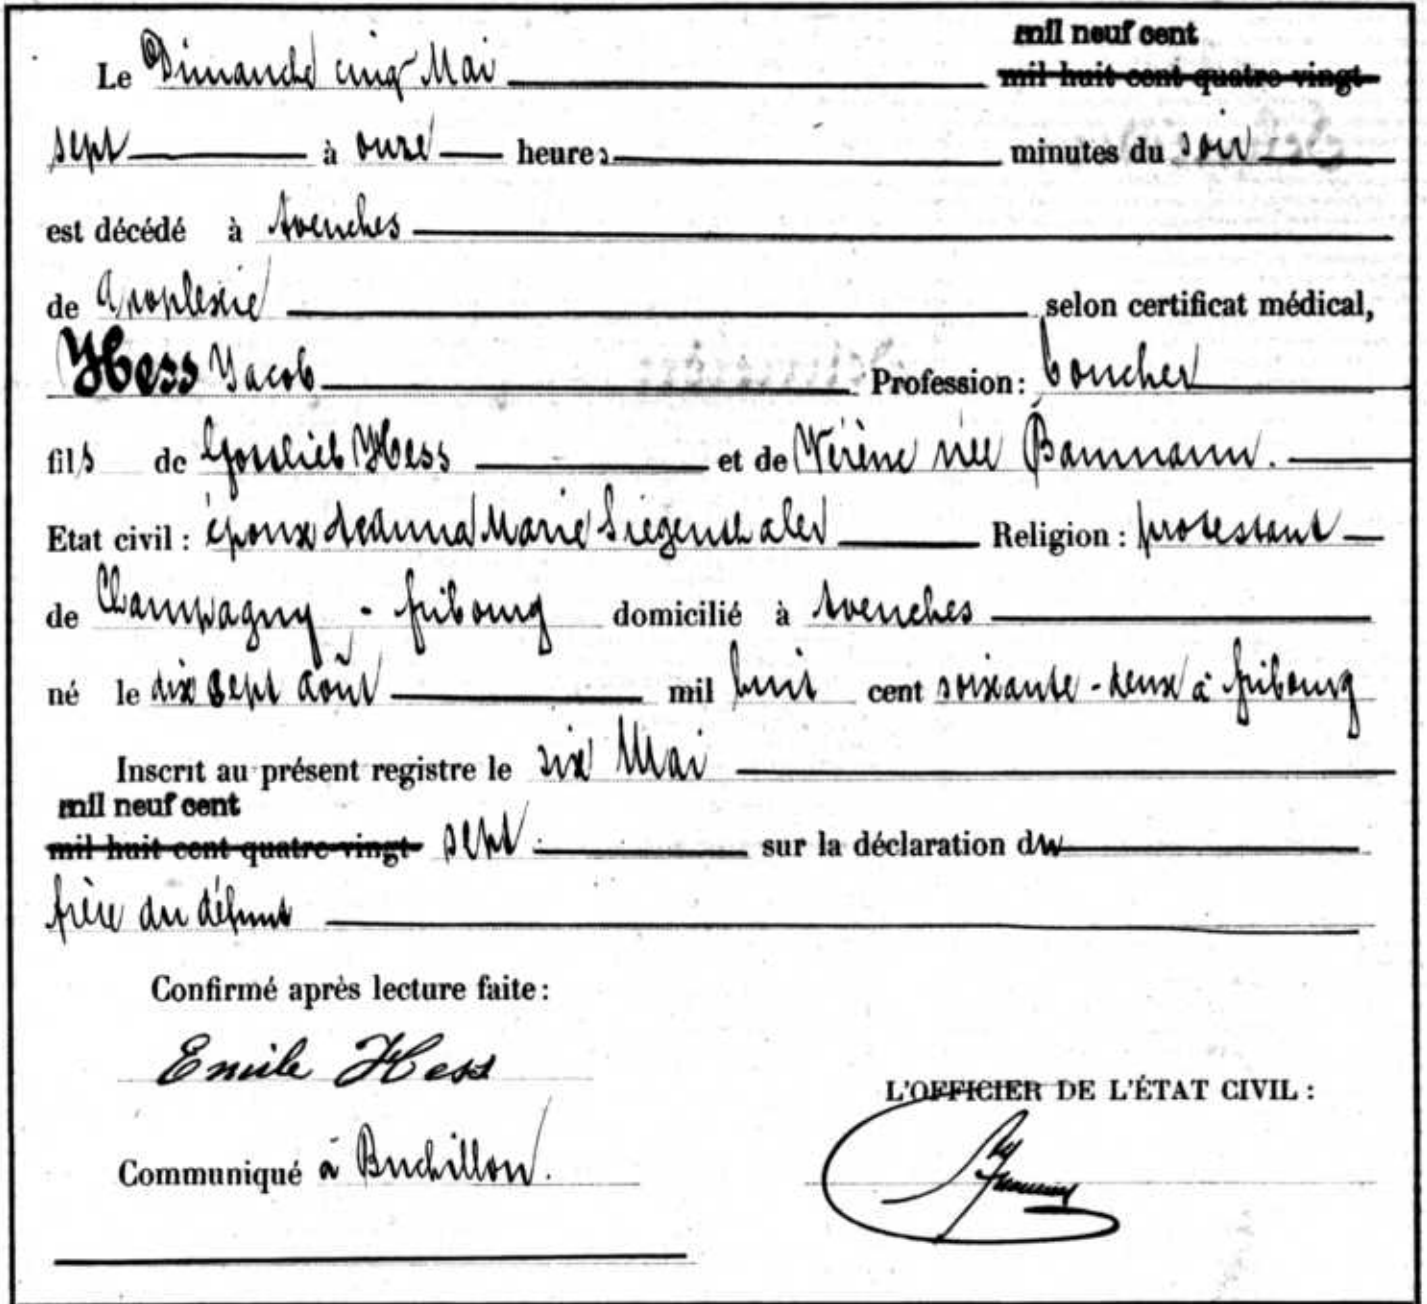 mil neuf cent
Le Dimanche cinq Mai mil huit cent quatre-vingt
sept à onze heures minutes du soir
est décédé à Avenches
de Apoplexie selon certificat médical,
Hess Jacob Profession: boucher
fils de Gottlieb Hess et de Vérène née Baumann.
Etat civil : époux de Anna Marie Siegenthaler Religion : protestant
de Champagny - fribourg domicilié à Avenches
né le dix sept août mil huit cent soixante-deux à fribourg
Inscrit au présent registre le six Mai
mil neuf cent
mil huit cent quatre-vingt sept sur la déclaration du
frère du défunt
Confirmé après lecture faite :
Emile Hess
L'OFFICIER DE L'ÉTAT CIVIL :
Communiqué à Buchillon.